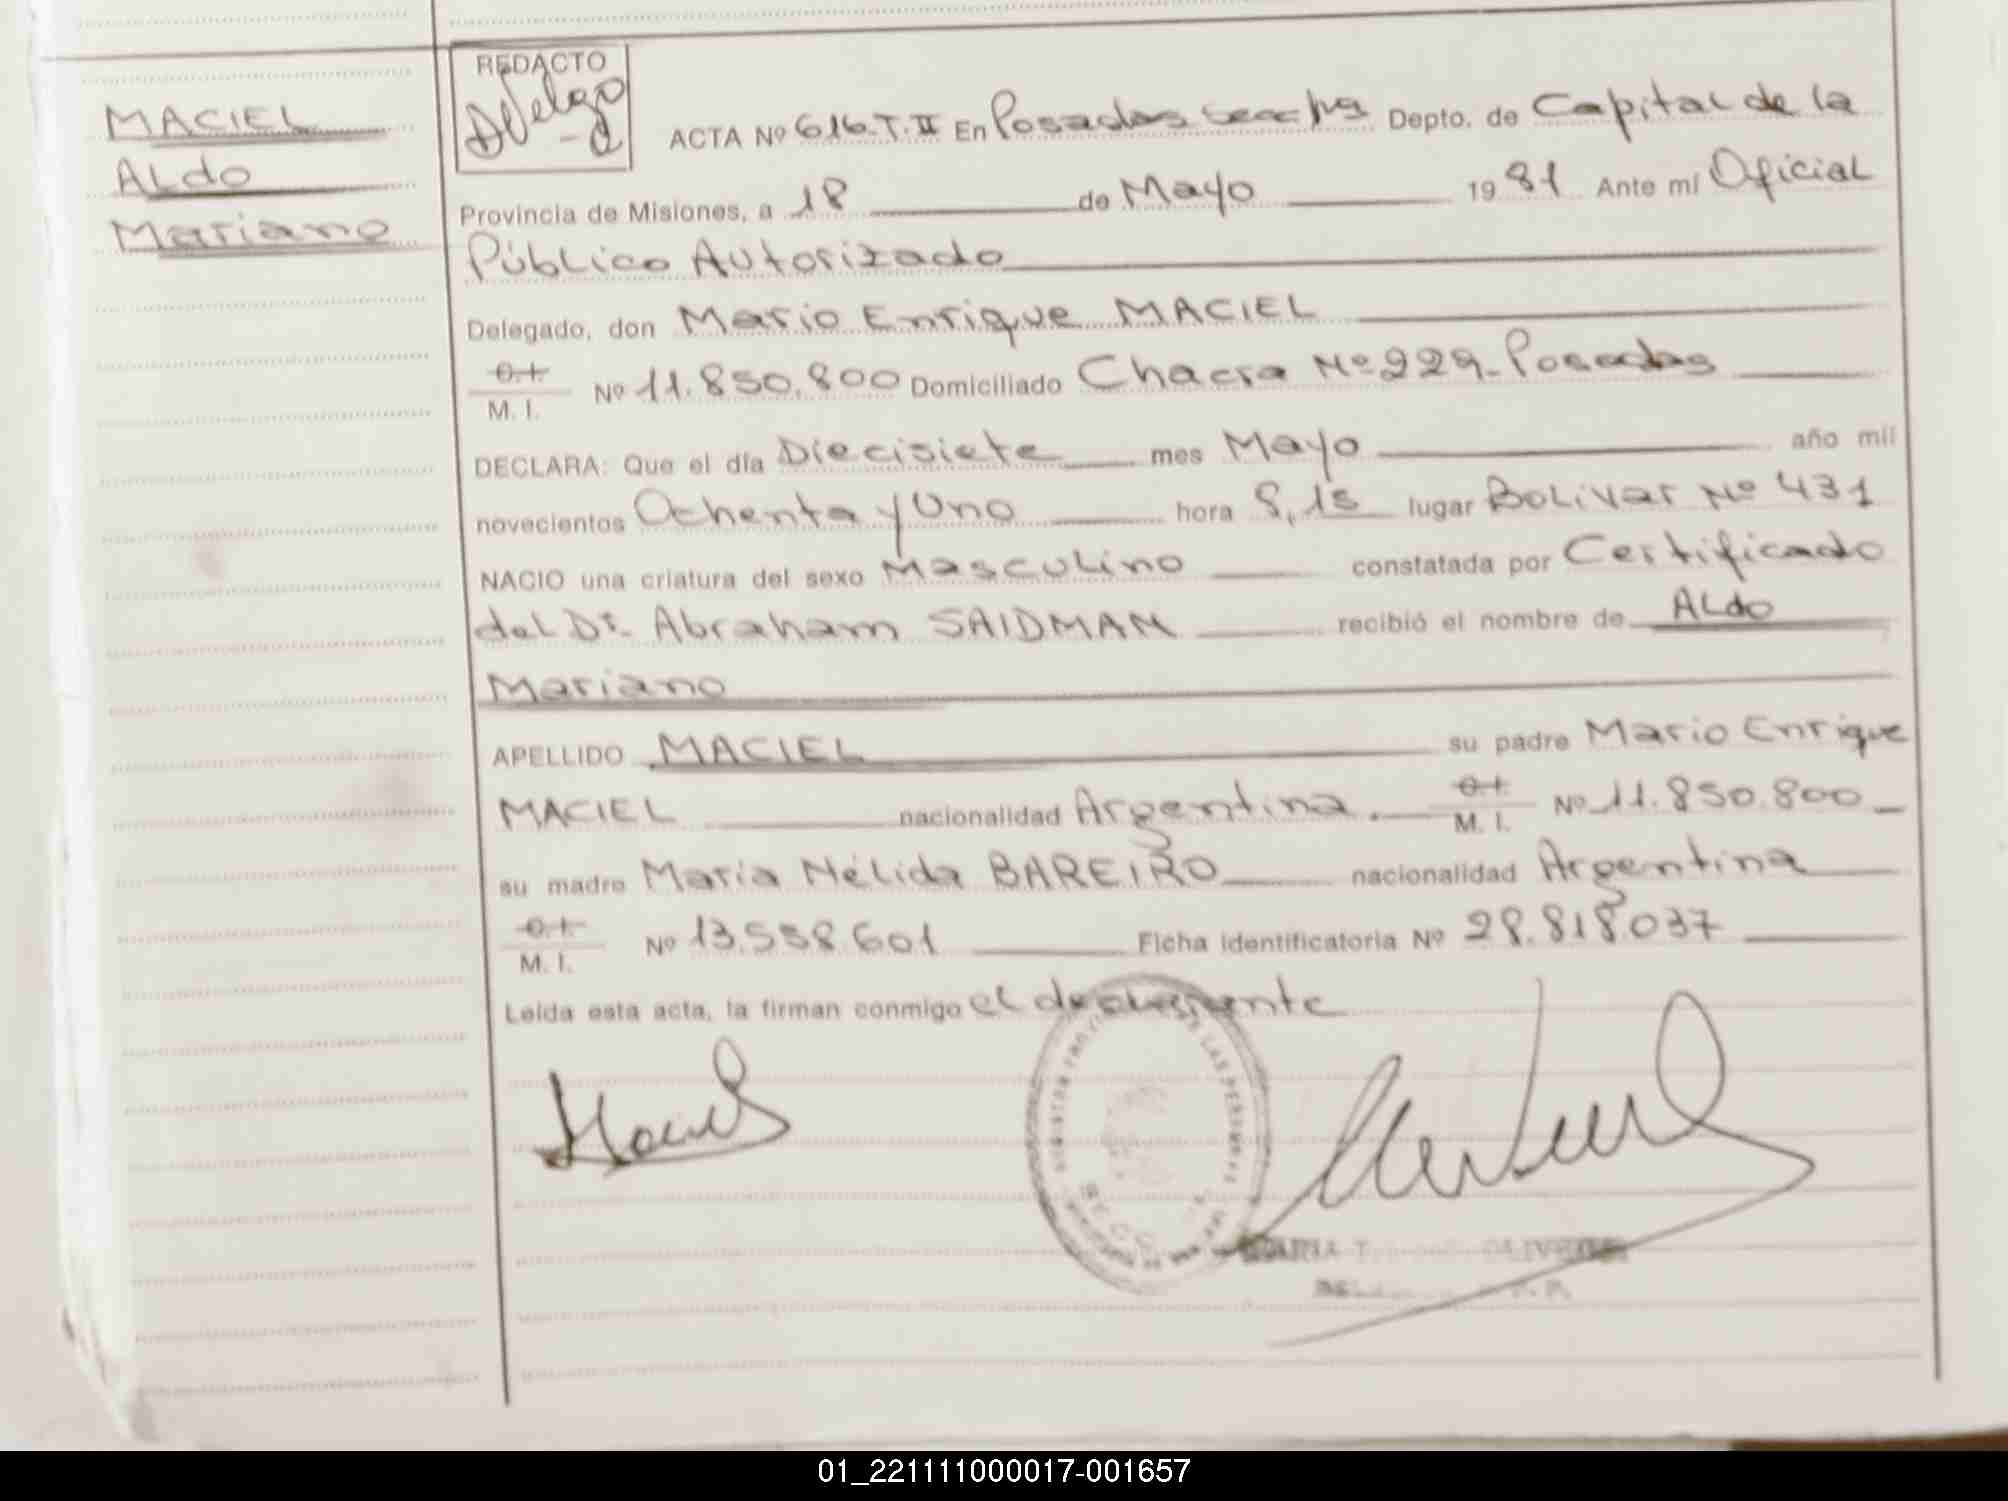 MACIEL
ALdo
Mariano
REDACTO
ACTA Nº 616.T.II En Posadas Depto. de Capital de la
Provincia de Misiones, a 18 de Mayo 1981 Ante mí Oficial
Público Autorizado
Delegado, don Mario Enrique MACIEL
M. I. Nº 11.850.800 Domiciliado Chacra Nº 229-Posadas
DECLARA: Que el día Diecisiete mes Mayo año mil
novecientos Ochenta y Uno hora 8,15 lugar BOLIVAR Nº 431
NACIO una criatura del sexo Masculino constatada por Certificado
del Dr. Abraham SAIDMAN recibió el nombre de ALdo
Mariano
APELLIDO MACIEL su padre Mario Enrique
MACIEL nacionalidad Argentina. M. I. Nº 11.850.800
su madre María Nélida BAREIRO nacionalidad Argentina
M. I. Nº 13.558.601 Ficha identificatoria Nº 28.818.037
Leída esta acta, la firman conmigo el declarante
Maciel
DE LAS PERSONAS
01_221111000017-001657